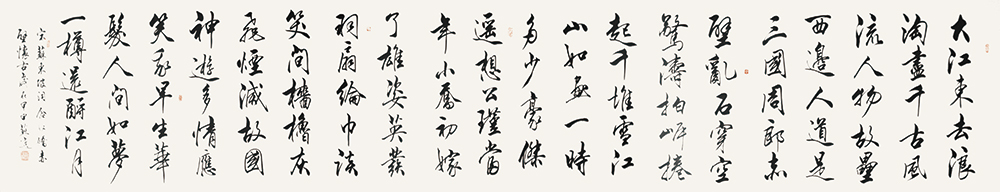 大江東去浪
淘盡千古風
流人物故壘
西邊人道是
三國周郎赤
壁亂石穿空
驚濤拍岸捲
起千堆雪江
山如畫一時
多少豪傑
遙想公瑾當
年小喬初嫁
了雄姿英發
羽扇綸巾談
笑間檣櫓灰
飛煙滅故國
神遊多情應
笑我早生華
髮人間如夢
一樽還酹江月
宋蘇東坡詞
壁懷古